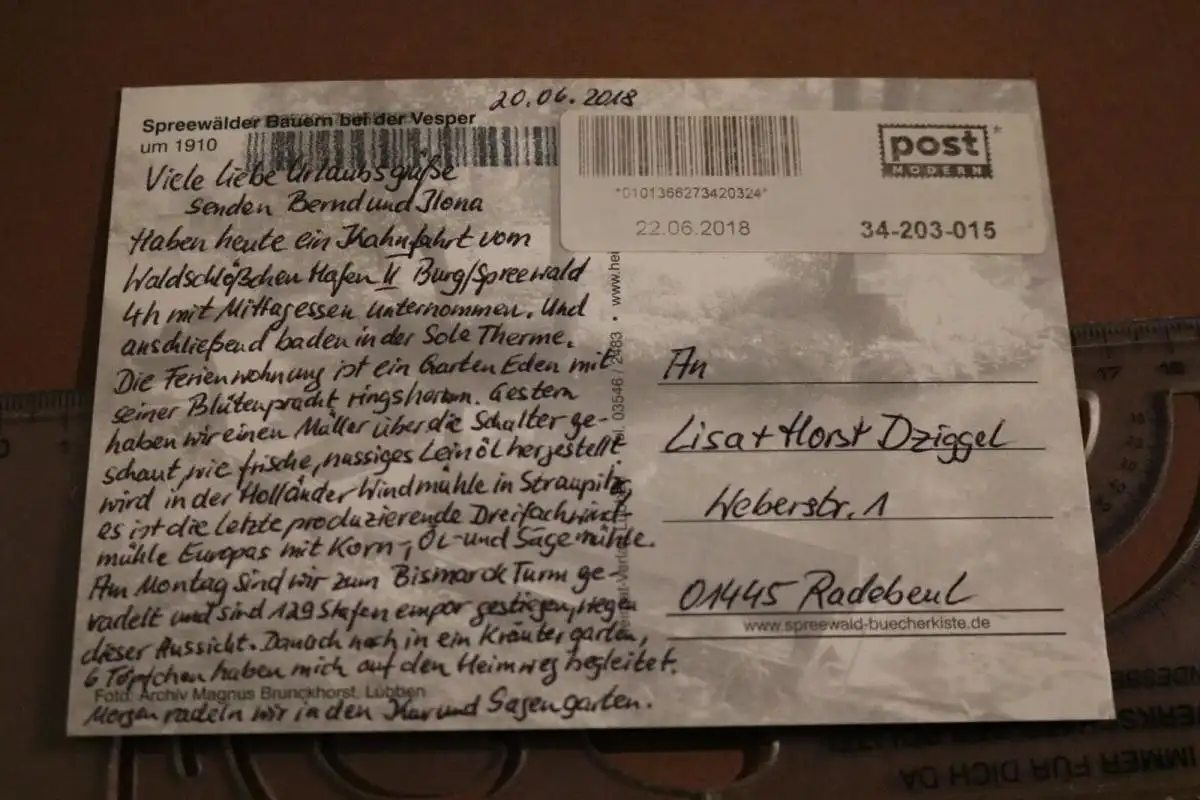 20.06.2018
Spreewälder Bauern bei der Vesper
um 1910
Viele liebe Urlaubsgrüße
senden Bernd und Ilona
Haben heute ein Kahnfahrt vom
Waldschlößchen Hafen II Burg/Spreewald
4h mit Mittagessen unternommen. Und
anschließend baden in der Sole Therme.
Die Ferienwohnung ist ein Garten Eden mit
seiner Blütenpracht ringsherum. Gestern
haben wir einen Müller über die Schulter ge-
schaut, wie frische, nussiges Leinöl hergestellt
wird in der Holländer Windmühle in Straupitz,
es ist die letzte produzierende Dreifachwind-
mühle Europas mit Korn-, Öl- und Sägemühle.
Am Montag sind wir zum Bismarck Turm ge-
radelt und sind 129 Stufen empor gestiegen, wegen
dieser Aussicht. Danach noch in ein Kräutergarten,
6 Töpfchen haben mich auf den Heimweg begleitet.
Foto: Archiv Magnus Brunckhorst, Lübben
Morgen radeln wir in den und Sagengarten.
03546 / 2483 • www.hei
*0101366273420324*
22.06.2018
post
MODERN
34-203-015
An
Lisa + Horst Dziggel
Weberstr. 1
01445 Radebeul
www.spreewald-buecherkiste.de
17
18
IMMER FÜR DICH DA